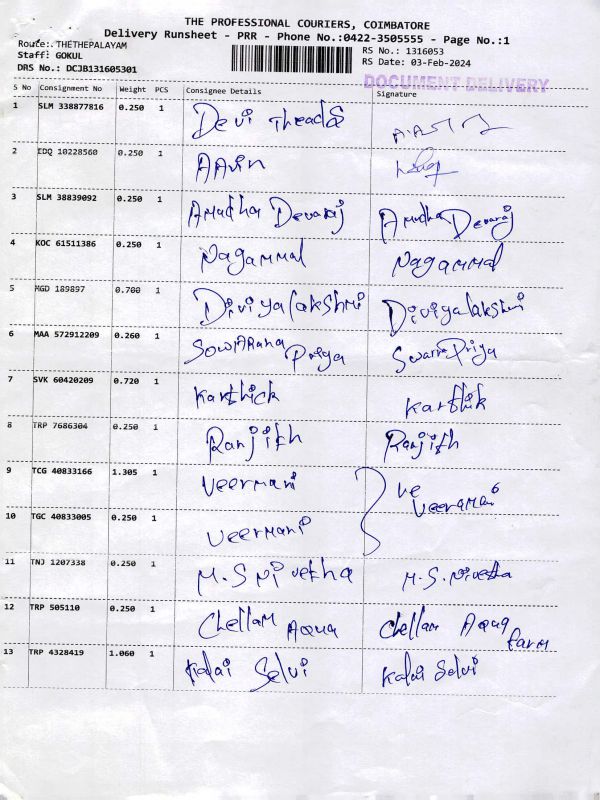 THE PROFESSIONAL COURIERS, COIMBATORE
Delivery Runsheet - PRR - Phone No.:0422-3505555 - Page No.:1
Route:. THETHEPALAYAM
RS No.: 1316053
Staff: GOKUL
RS Date: 03-Feb-2024
DRS No.: DCJB131605301
DOCUMENT DELIVERY
S No Consignment No Weight PCS Consignee Details Signature
1 SLM 338877816 0.250 1 Devi Threads
2 EDQ 10228560 0.250 1 AAvin
3 SLM 38839092 0.250 1 Amudha Devaraj Amudha Devaraj
4 KOC 61511386 0.250 1 Nagammal Nagammal
5 MGD 189897 0.700 1 Diviyalakshmi Diviyalakshmi
6 MAA 572912209 0.260 1 Priya Priya
7 SVK 60420209 0.720 1 Karthick Karthik
8 TRP 7686304 0.250 1 Ranjith Ranjith
9 TCG 40833166 1.305 1 Veermani Ve
Veeramani
10 TGC 40833005 0.250 1 Veermani
11 TNJ 1207338 0.250 1 M.S Nivetha M.S. Nivetha
12 TRP 505110 0.250 1 Chellam Aqua Chellam Aqua
farm
13 TRP 4328419 1.060 1 Kalai Selvi Kalai Selvi